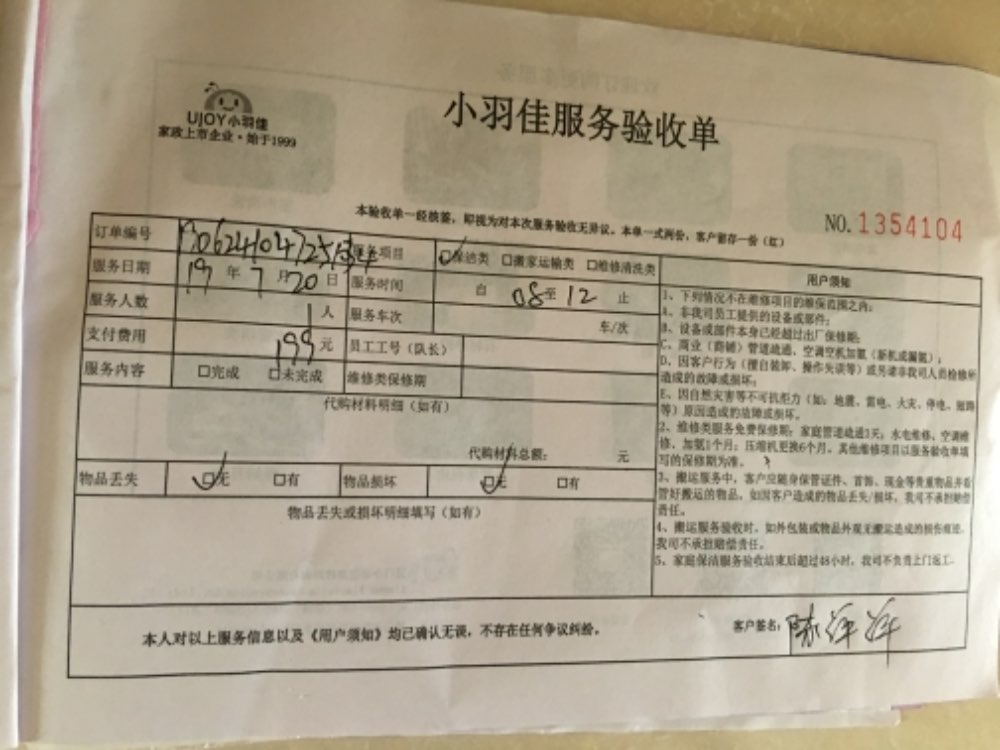 UJOY小羽佳
家政上市企业·始于1999
小羽佳服务验收单
本验收单一经核签，即视为对本次服务验收无异议。本单一式两份，客户留存一份（红）
NO.1354104
订单编号
服务项目 保洁类 搬家运输类 维修清洗类
服务日期 19年7月20日
服务时间 自08至12止
服务人数 1人
服务车次 车/次
支付费用 199元
员工工号（队长）
服务内容 完成 未完成
维修类保修期
代购材料明细（如有）
代购材料总额： 元
物品丢失 无 有
物品损坏 无 有
物品丢失或损坏明细填写（如有）
用户须知
1、下列情况不在维修项目的维保范围之内：
A、非我司员工提供的设备或部件；
B、设备或部件本身已经超过出厂保修期；
C、商业（商铺）管道疏通、空调空机加氨（新机或漏氨）；
D、因客户行为（擅自装卸、操作失误等）或另请非我司人员检修所
造成的故障或损坏；
E、因自然灾害等不可抗拒力（如：地震、雷电、火灾、停电、短路
等）原因造成的故障或损坏。
2、维修类服务免费保修期：家庭管道疏通3天；水电维修、空调维
修、加氨1个月；压缩机更换6个月。其他维修项目以服务验收单填
写的保修期为准。
3、搬运服务中，客户应随身保管证件、首饰、现金等贵重物品并看
管好搬运的物品，如因客户造成的物品丢失/损坏，我司不承担赔偿
责任。
4、搬运服务验收时，如外包装或物品外观无搬运造成的损伤痕迹，
我司不承担赔偿责任。
5、家庭保洁服务验收结束后超过48小时，我司不负责上门返工。
本人对以上服务信息以及《用户须知》均已确认无误，不存在任何争议纠纷。
客户签名：